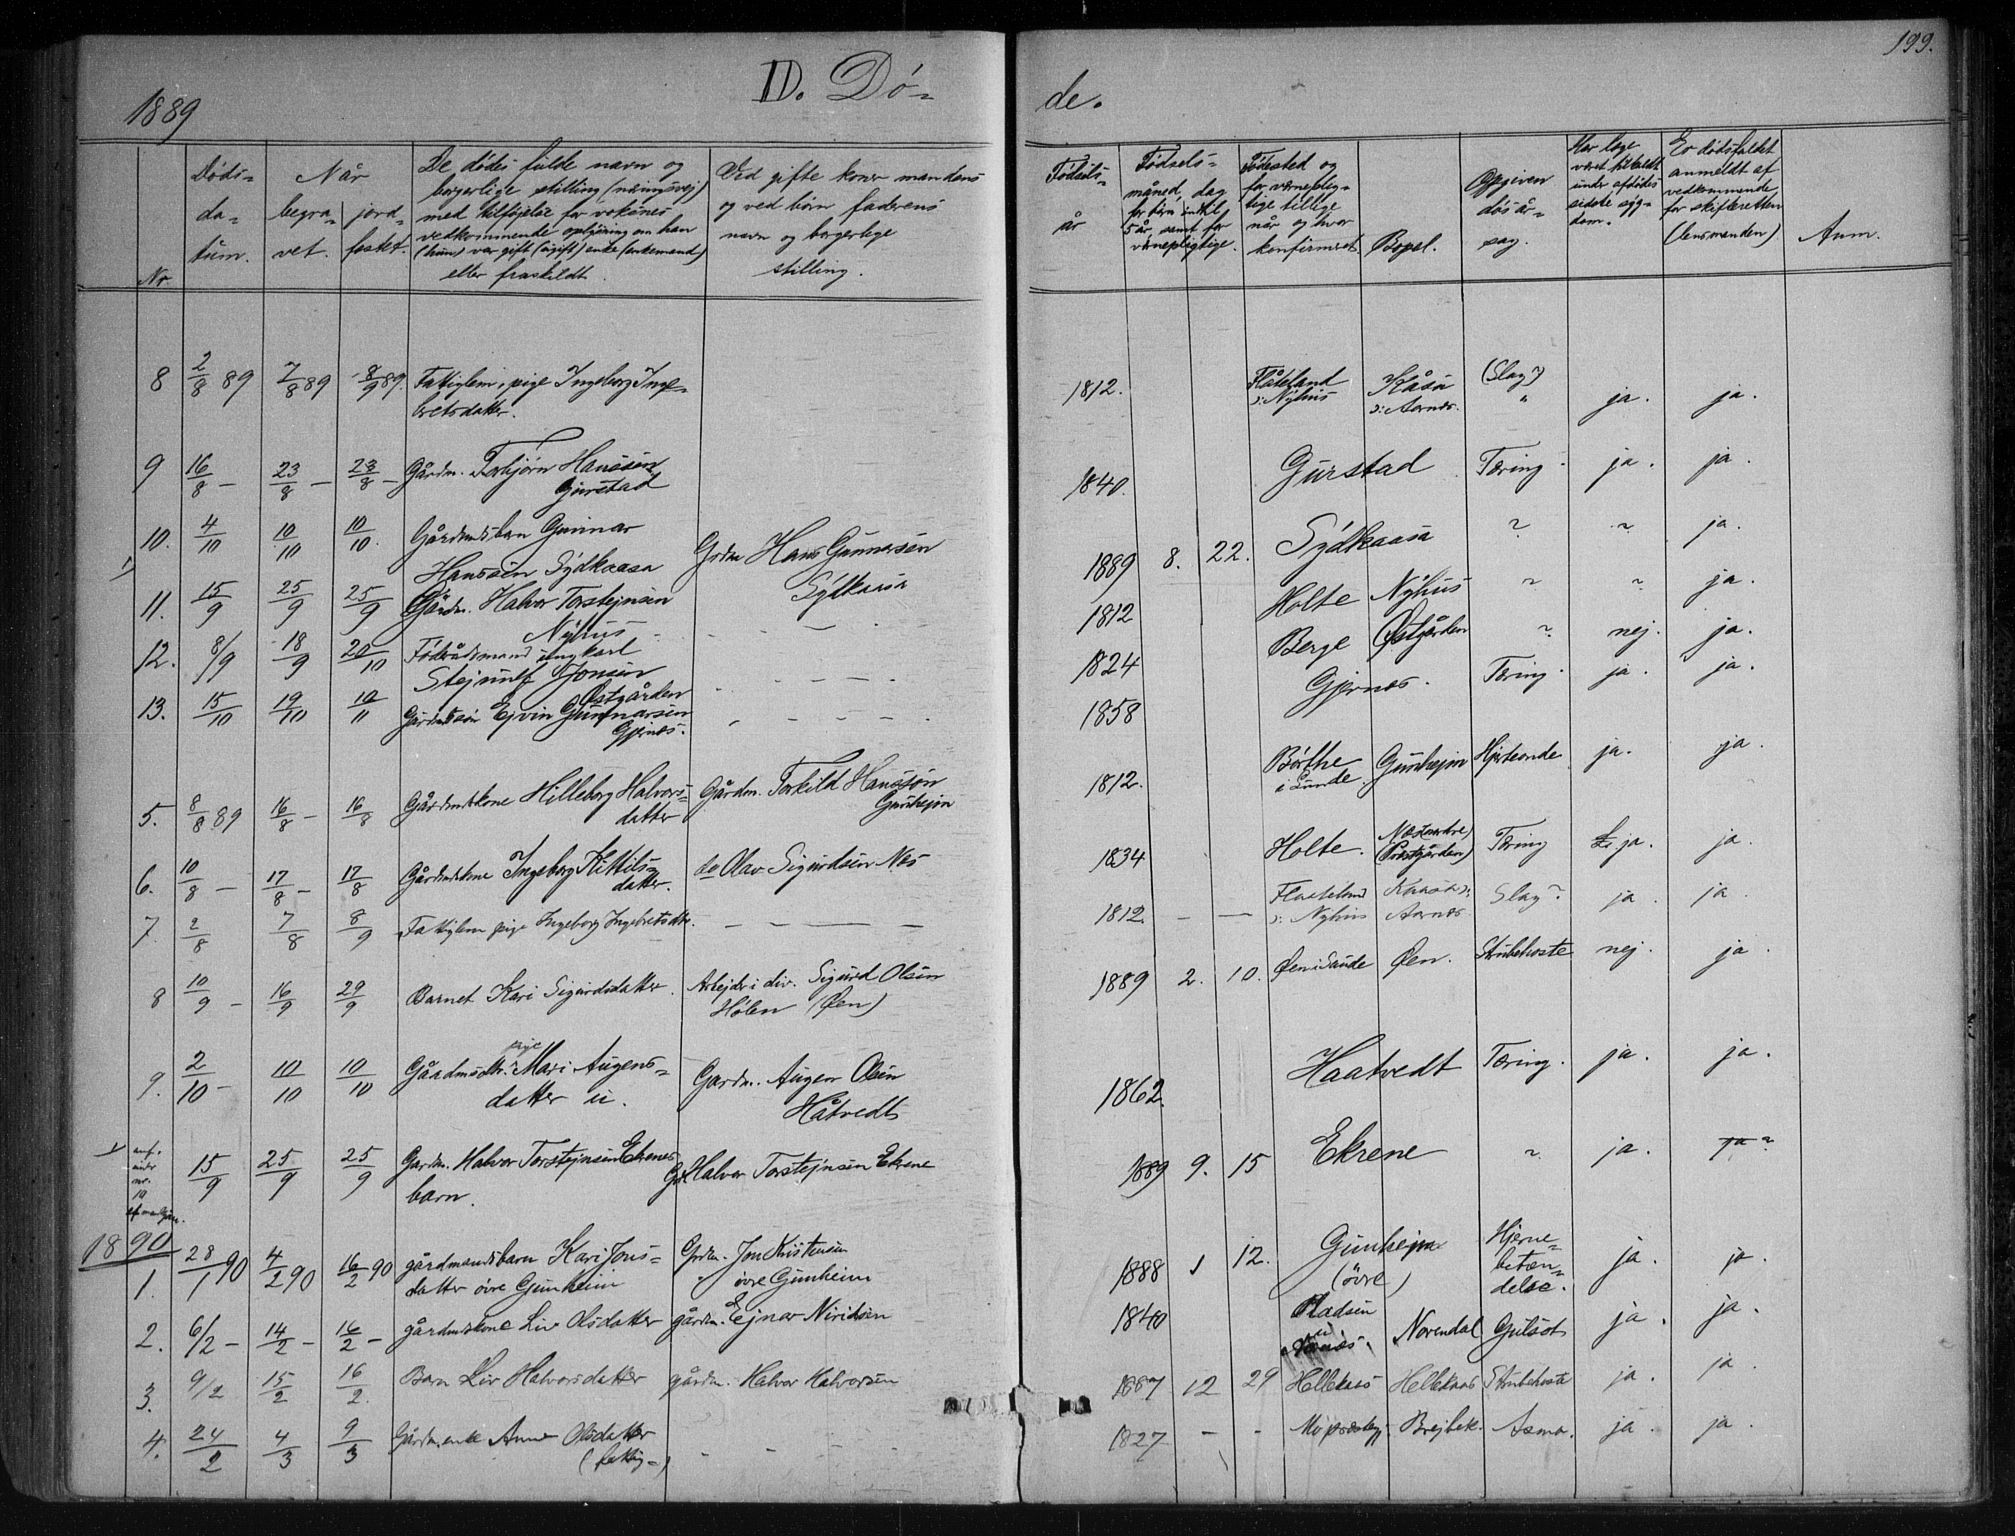 199.
D. Dö-
de.
1889
Nr.
Døds-
da-
tum.
Når
begra-
vet.
jord-
fæstet.
De dødes fulde navn og
borgerlige stilling (næringsvej)
med tilføjelse for voksnes
vedkommende oplysning om han
(hun) var gift (ugift) enke (enkemand)
eller fraskildt.
Ved gifte koner mandens
og ved børn faderens
navn og borgerlige
stilling.
Fødsels-
år
Fødsels-
måned, dag
for børn indtil
5 år, samt for
værnepligtige.
Fødested og
for værneplig-
tige tillige
når og hvor
konfirmeret.
Bopæl.
Opgiven
døsår-
sag.
Har læge
været tilkaldt
under afdødes
sidste syg-
dom.
Er dødsfaldet
anmeldt af
vedkommende
for skifteretten
(lensmanden)
Anm.
8 2/8 89 7/8 89 8/9 89. Fattiglem, pige Ingeborg Inge-
bretsdatter.
1812. Flåteland
ɔ: Nyhus Kåsa
ɔ: Aarnes. (Slag?)
" ja. ja.
9 16/8 – 23/8 – 23/8 – Gårdm. Torbjørn Hanssen
Gurstad
1840. Gurstad Tæring. ja. ja.
10. 4/10 10/10 10/10. Gårdmdsbarn Gunnar
Hanssen Sydkaasa Grdm Hans Gunnarsen
Sydkaasa
1889 8. 22. Sydkaasa ? ~ ja.
11. 15/9 25/9 25/9 Gårdm. Halvor Torstejnsen
Nyhus - - - -
1812 Holte Nyhus ~ ~ ja.
12. 8/9 18/9 20/10 Föderådsmand ungkarl
Stejnulf Jonsen
Østgården - - - -
1824 Berge Østgården ~. nej. ja.
13. 15/10 19/10 10/11 Gårdmdssøn Ejvin Gunnarsen
Gjernes. - - - -
1858 Gjernes. Tæring. ja. ja.
5. 8/8 89 16/8 – 16/8 Gårdmdskone Hilleborg Halvors-
datter Gårdm. Torkild Hanssøn
Gunhejm
1812. Børthe
i Lunde Gunhejm Hjerteonde ja. ja.
6. 10/8 – 17/8 – 17/8 Gårdmdskone Ingeborg Kittils-
datter. do Olav Sigurdsen Nes
1834 Holte. (Prestgården) Tæring ja. ja.
7. 2/8 7/8 8/9 Fattiglem pige Ingeborg Ingebretsdtr. - - - -
1812. – – Flaateland
ɔ: Nyhus Kaasa ɔ:
Aarnes. Slag? ja. ja
8 10/9 – 16/9 29/9 Barnet Kari Sigurdsdatter. Arbejder i div. Sigurd Olsen
Hølen (Øen)
1889 2. 10. Øen i Saude Øen. Strubehoste nej. ja
9. 2/10 – 10/10 10/10 Gårdmsdtr. pige Mari Augens-
datter u. Gardm. Augen Olsen
Håtvedt
1862. Haatvedt Tæring. ja. ja.
anf.
under
nr.
10
af mandkjøn.
15/9 25/9 25/9 Gardm. Halvor Torstejnsen Ekrenes
barn. Gdr. Halvor Torstejnsen Ekrene
1889 9. 15 Ekrene ~. ja. ja ?
1890
1. 28/1 90 4/2 90 16/2 90 gårdmandsbarn Kari Jons-
datter övre Gunheim Grdm. Jon Kristensen
övre Gunheim
1888 1 12. Gunhejm
(övre) Hjerne-
betæn-
delse. ja. ja.
2. 6/2 – 14/2 – 16/2 – gårdmdskone Liv Olsdatter gårdm. Ejnar Niridsen
1840 Pladsen
u
Nænes. Norendal Gulsot ja. ja.
3. 9/2 15/2 16/2. Barn Liv Halvorsdatter gårdm. Halvor Halvorsen
1887 12 29 Hellekaas Hellekaas Strubehoste ja. ja.
4. 24/2 4/3 9/3 Gårdm.enke Anne Olsdatter
(fattig-) - - - -
1827 – – Mo præstegj. Brejbek. Asma. ja. ja.